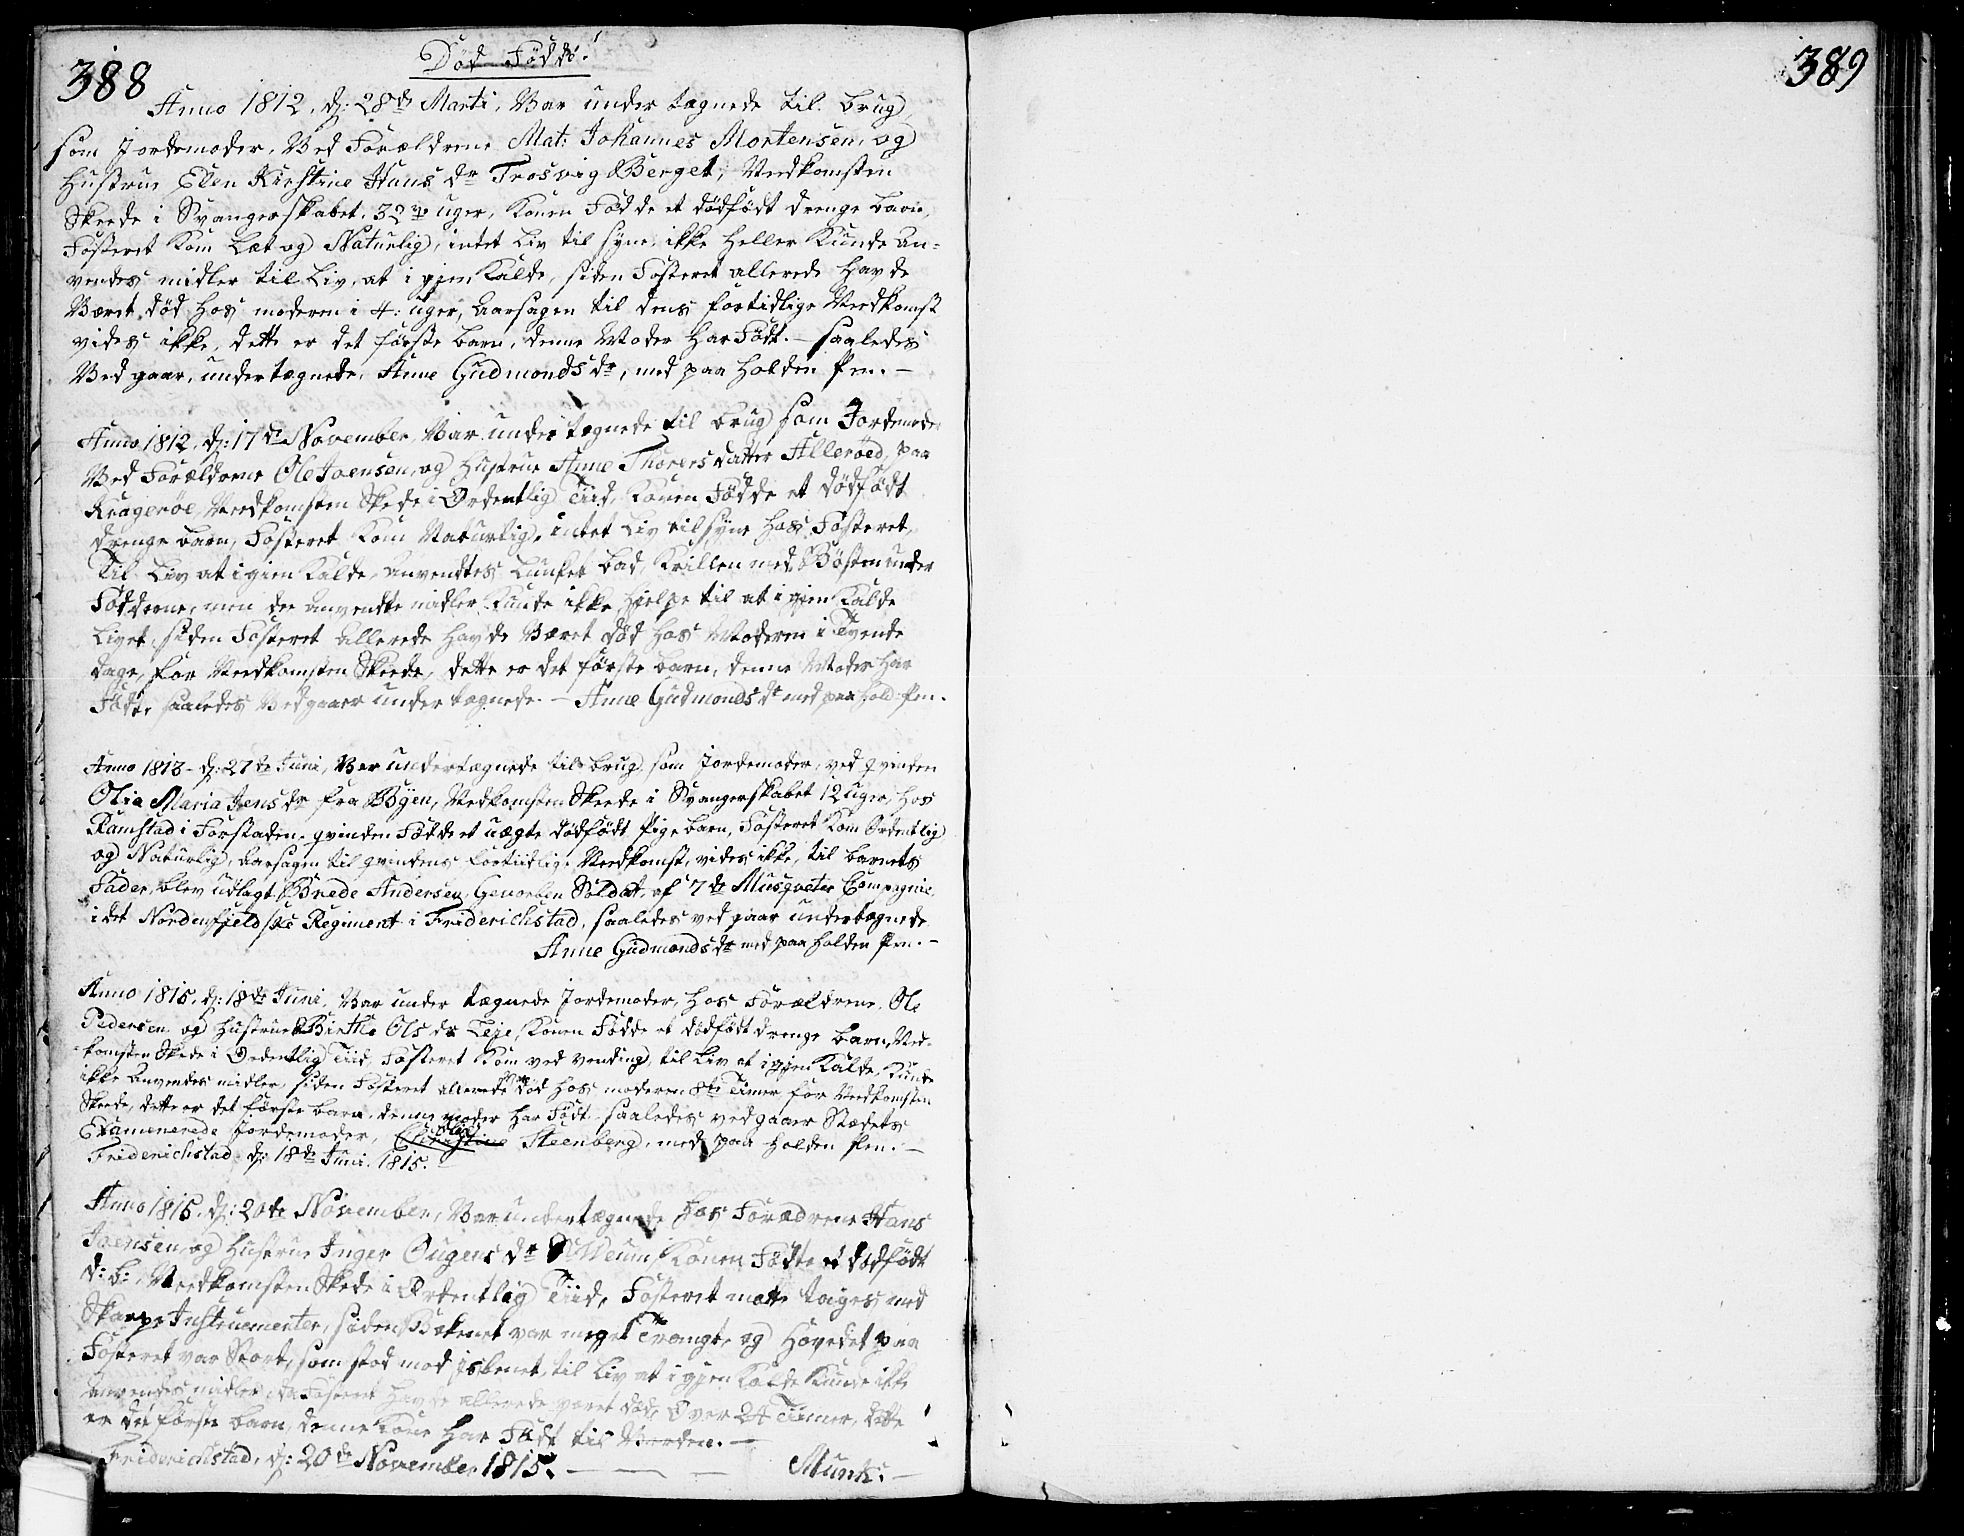 388
Død Fødde.
Anno 1812, d: 28de Marti, Var under tægnede til brug
som Jordemoder, Ved Forældrene Mat: Johannes Mortensen, og
Hustrue Elen Kirstine Hans dr Trosvig Berget; Nedkomsten
Skeede i Svangerskabet 32 uger, Konen Fødde et dødfødt drenge barn,
Fosteret Kom Læt og Naturlig, intet Liv til syne, ikke heller Kunde an-
vendes midler til Liv, at i gjen Kalde, siden Fosteret allerede havde
Været død hos moderen i 4: uger, Aarsagen til dens fortidlige Nedkomst
vides ikke, dette er det første barn, denne Moder har Født. – saaledes
Ved gaar, undertægnede, Anne Gudmonds dr, med paa holden Pen. –
Anno 1812, d: 17de November, Var under tægnede til brug som Jordemoder
Ved Forældrene Ole Joensen, og Hustrue Anne Thorers datter Allerøed, paa
Kragerøe, Nedkomsten Skede i Ordentlig Tiid, Konen Fødde et dødfødt
drenge barn, Fosteret Kom Naturlig, intet Liv til syne hos Fosteret,
Til Liv at igien Kalde, anvendtes Lunket bad, Krillen med Børsten under
Fødderne, men de anvendte midler Kunde ikke hielpe til at i gjen Kalde
Livet, siden Fosteret allerede havde Været død hos Moderen i Tvende
dage, før Nedkomsten Skeede, dette er det første barn, denne Moder har
Født, saaledes Vedgaaer under tægnede. – Anne Gudmonds dr med paa hold Pen.
Anno 1813 – d: 27de Juni, Var undertægnede til brug som Jordemoder, ved qvinden
Olia Maria Jens dr fra Byen, Nedkomsten Skeede i Svangerskabet 12 uger, hos
Ramstad i Forstaden, qvinden Fødde et uægte dødfødt Pige barn, Fosteret Kom Ordentlig
og Naturlig, Aarsagen til qvindens fortiidlige Nedkomst, vides ikke, til barnets
Fader, blev udlagt Brede Andersen, Gevorben Soldat, af 7de Musqveter Compagnie,
i det Nordenfjeldske Regiment i Friderichstad, saaledes ved gaar undertægnede
Anne Gudmonds dr med paa holden Pen. –
Anno 1815, d: 18de Juni, Var under tægnede Jordemoder, hos Forældrene, Ole
Pedersen og Hustrue Birthe Ols dr Leje, Konen Fødde et dødfødt drenge barn, Ned-
komsten Skede i Ordentlig Tiid, Fosteret Kom ved vending, til Liv at i gjen Kalde, Kunde
ikke anvendes midler, siden Fosteret allerede var død hos moderen 8te Timer før Nedkomsten
Skeede, dette er det første barn, denne moder har Født. saaledes ved gaaer Stædets
Examenerede Jordemoder, Steenberg, med paa holden Pen. –
Friderichstad d: 18de Juni 1815. –
Anno 1815, d: 20de November, Var undertægnede hos Forældrene Hans
Joensen, og Hustrue Inger Ougens dr Veum, Konen Fødte et dødfødt
d: b:, Nedkomsten Skede i Ordentlig Tiid, Fosteret motte tages med
Skarpe Instruementer, siden Bekenet var meget Trangt, og Hovedet paa
Fosteret var Stort, som stod mod isbenet, til Liv at i gjen Kalde Kunde ikke
anvendes midler, da Fosteret havde allerede været død, Over 24 Timer, dette
er det første barn, denne Kone har Født til Verden. –
Friderichstad, d: 20de November 1815. – Munk. –
389